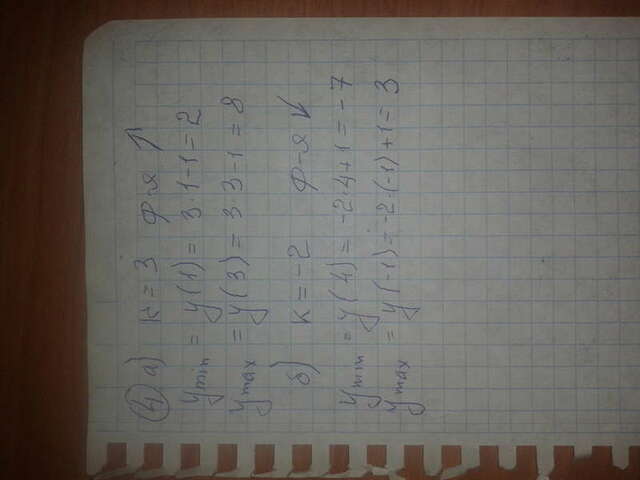 4) а) к = 3 ф-я ↑
y min = y(1) = 3·1-1=2
y max = y(3) = 3·3-1=8
б) к = -2 ф-я ↓
y min = y(4) = -2·4+1=-7
y max = y(-1) = -2·(-1)+1=3